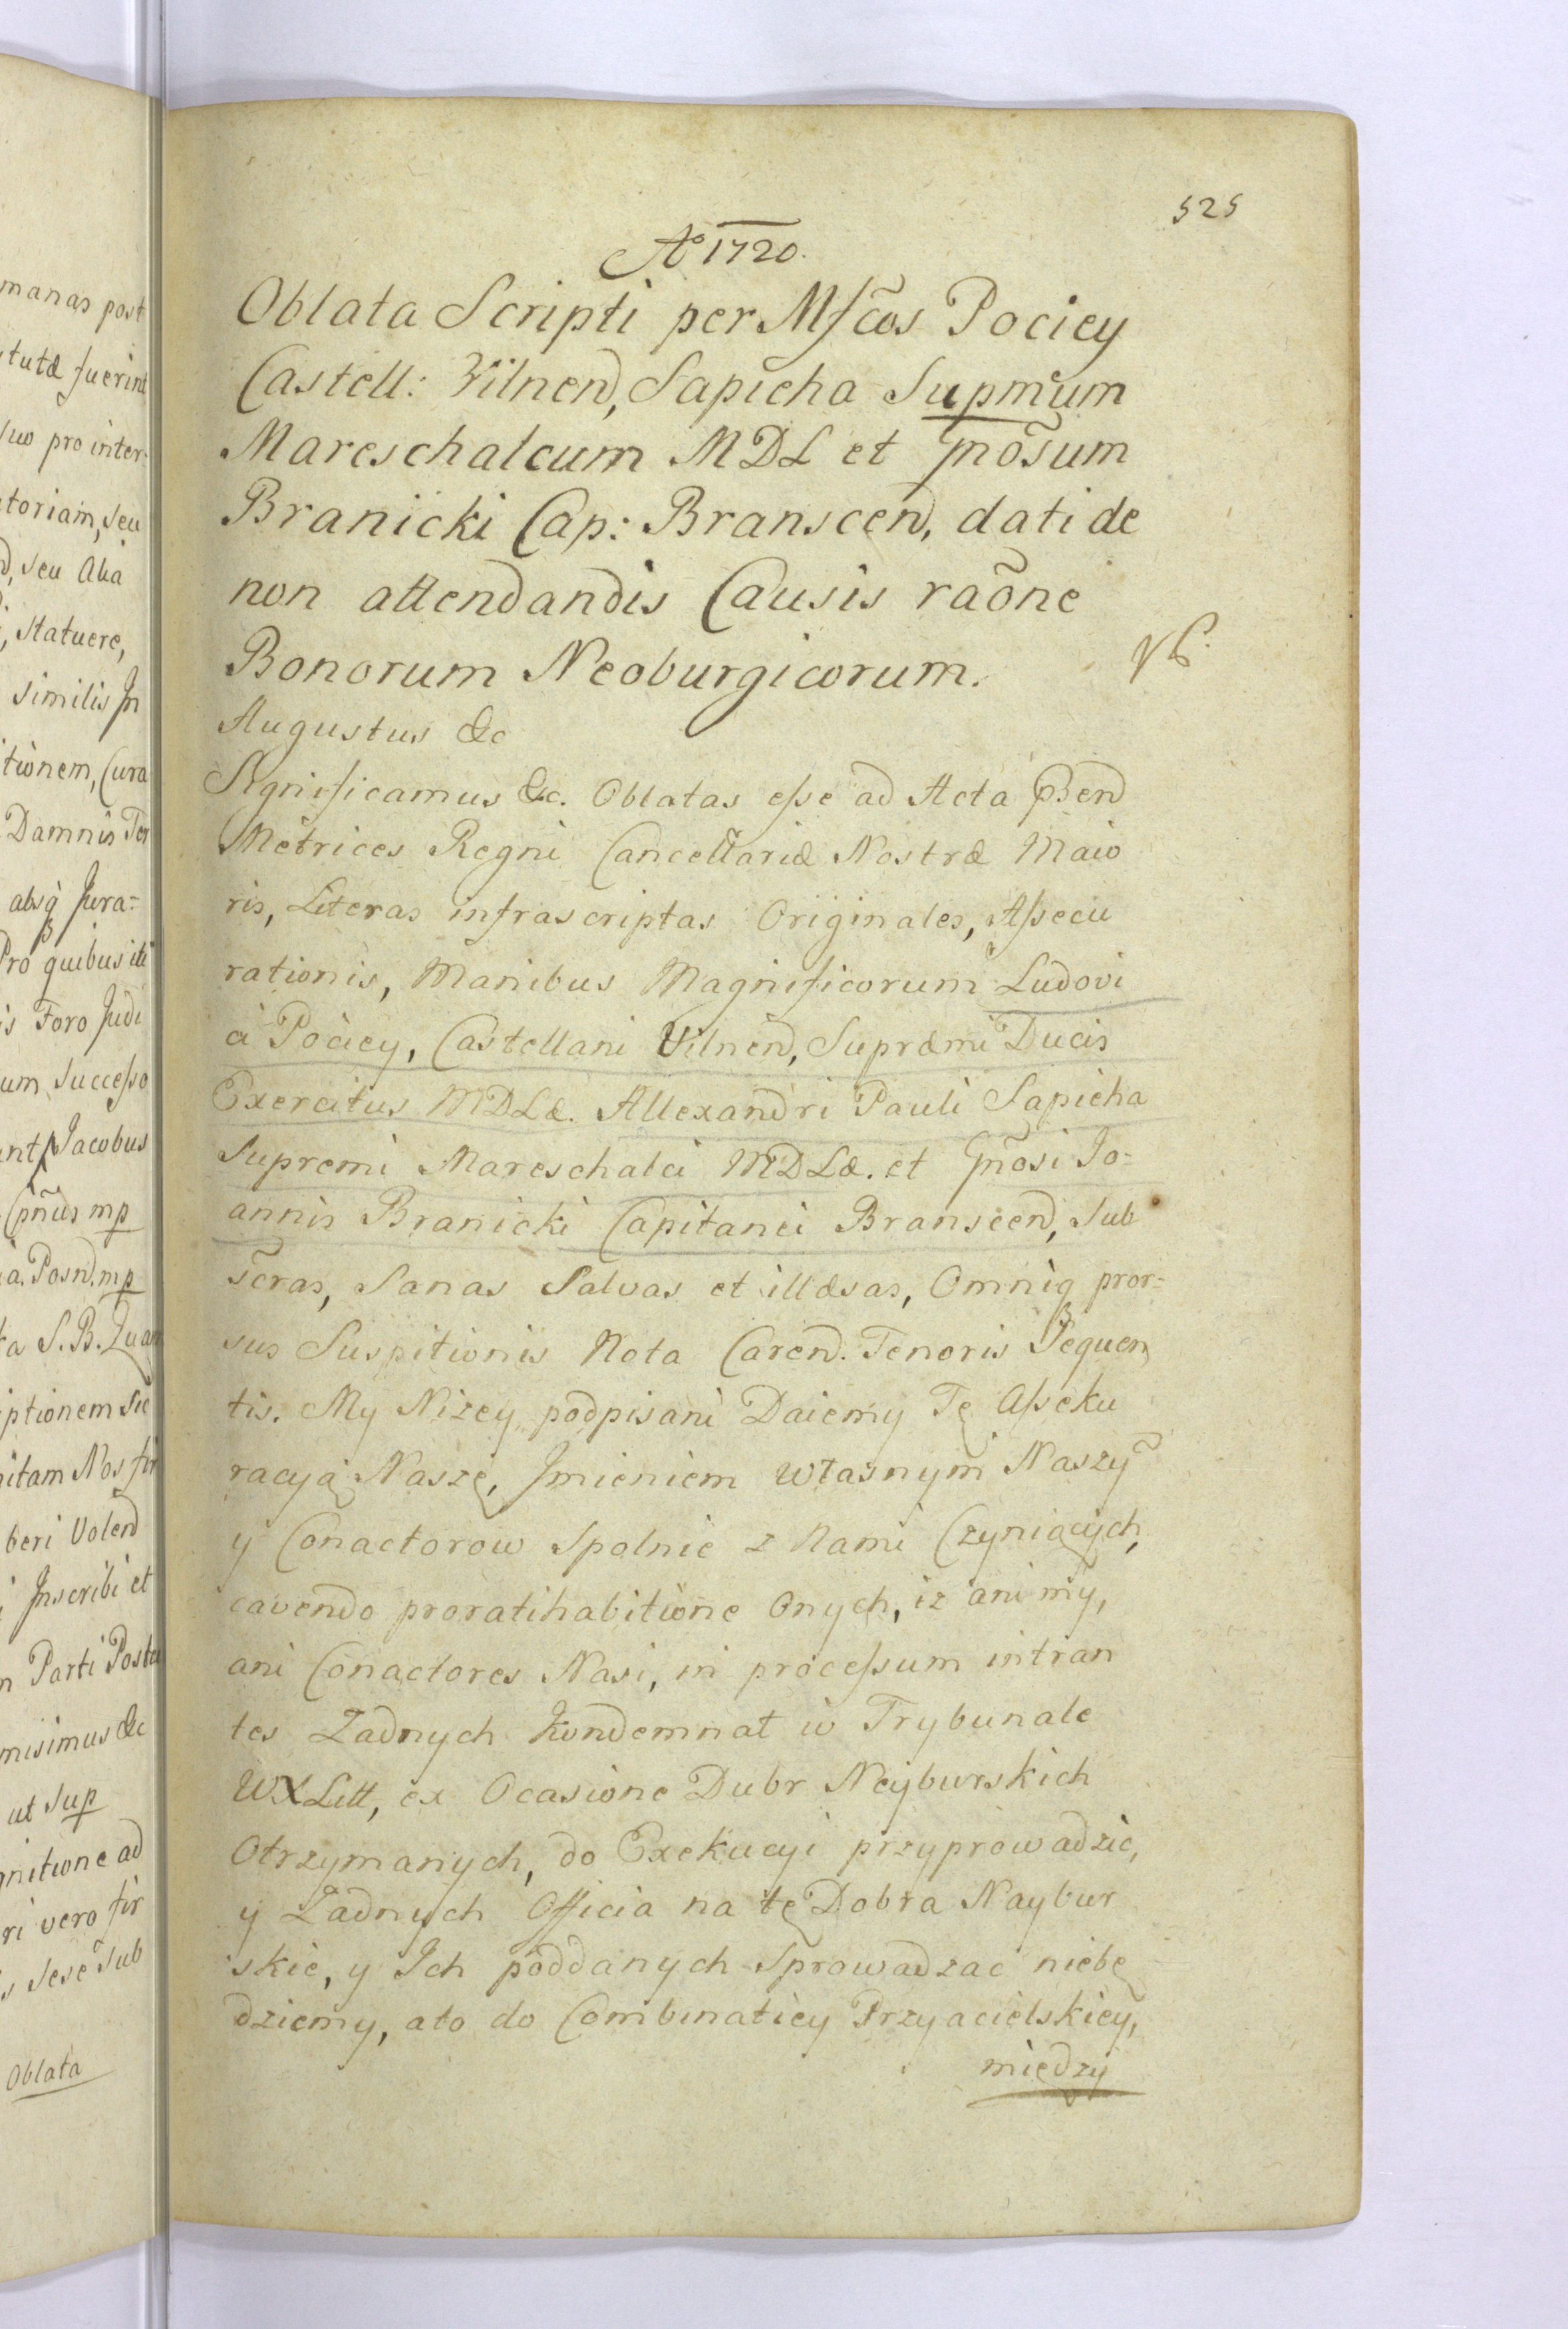 manas post
tutæ fuerint
suo pro inter
toriam, seu
seu Alia
statuere,
similis Jn
tionem, Cura
Damnis Ter
absq Jura=
Pro quibus iti
is Foro Judi
um successo
Jacobus
Cpñus mp
Posnd. mp
S. B.
ptionem sic
itam Nos fir
beri Volend
Jnscribi et
Parti Posta
misimus &c
ut sup
gnitione ad
ri vero fir
sese sub
Oblata
525
Aº 1720.
Oblata Scripti per Mfcos Pociey
Castell: Vilnend, Sapieha Supmum
Mareschalcum MDL et Gnosum
Branicki Cap: Branscend, dati de
non attendandis Causis raone
Bonorum Neoburgicorum.
Augustus &c
Significamus &c. Oblatas esse ad Acta Pend
Metrices Regni Cancellariæ Nostræ Maio
ris, Literas infrascriptas Originales, Assecu
rationis, Manibus Magnificorum Ludovi
ci Pociey, Castellani Vilnend, Supræmi Ducis
Exercitus MDLæ. Allexandri Pauli Sapieha
Supremi Mareschalci MDLæ. et Gnosi Jo=
annis Branicki Capitanei Branscend, sub
scras, Sanas Salvas et illæsas, Omniq pror=
sus Suspitionis Nota Carend. Tenoris Sequen
tis. My Nizey podpisani Daiemy Tę Asseku
racyą Naszę, Jmieniem własnym Naszỹ
y Conactorow Spolnie z Nami Czyniących,
cavendo proratihabitione Onych, iz ani my,
ani Conactores Nasi, in processum intran
tes Zadnych Kondemnat w Trybunale
WXLitt, ex Ocasione Dubr Neyburskich
Otrzymanych, do Exekucyi przyprowadzic,
y Zadnych Officia na tę Dobra Naybur
skie, y Ich poddanych Sprowadzac niebę
dziemy, ato do Combinatiey Przyacielskiey,
między